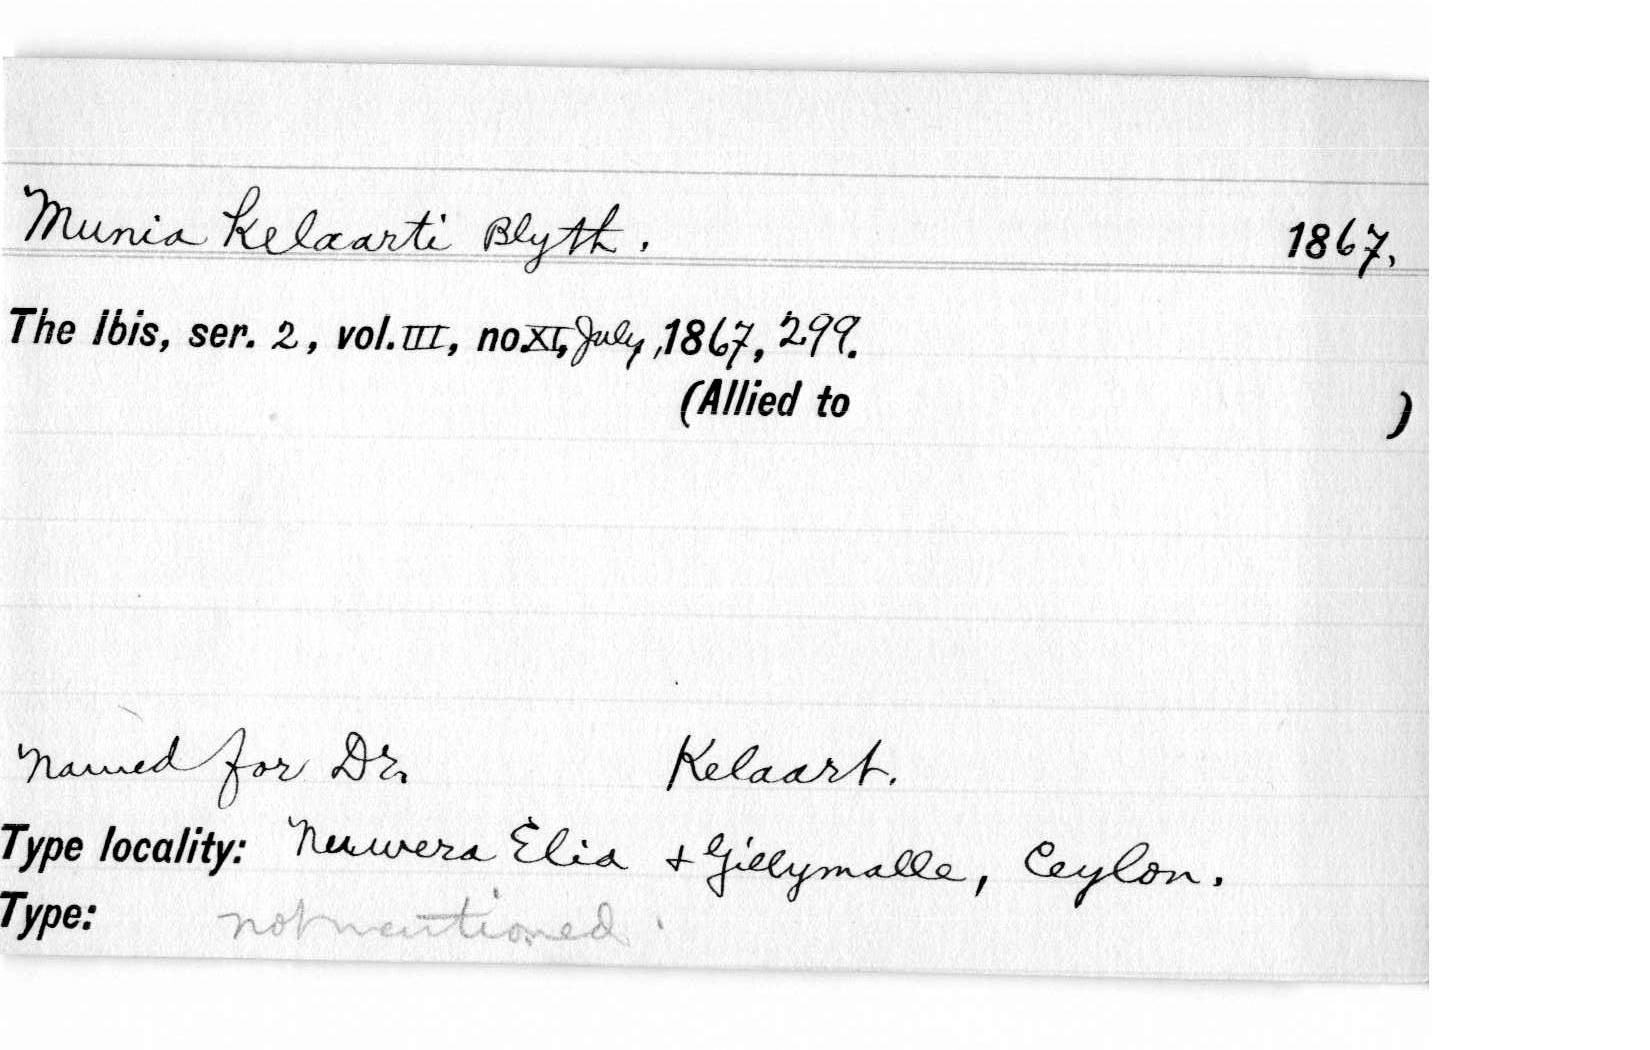 Munia Kelaarti Blyth. 1867.
The Ibis, ser. 2, vol. III, no. XI, July, 1867, 299.
(Allied to )
Named for Dr. Kelaart.
Type locality: Neuwera Elia + Gillymalle, Ceylon.
Type: not mentioned.